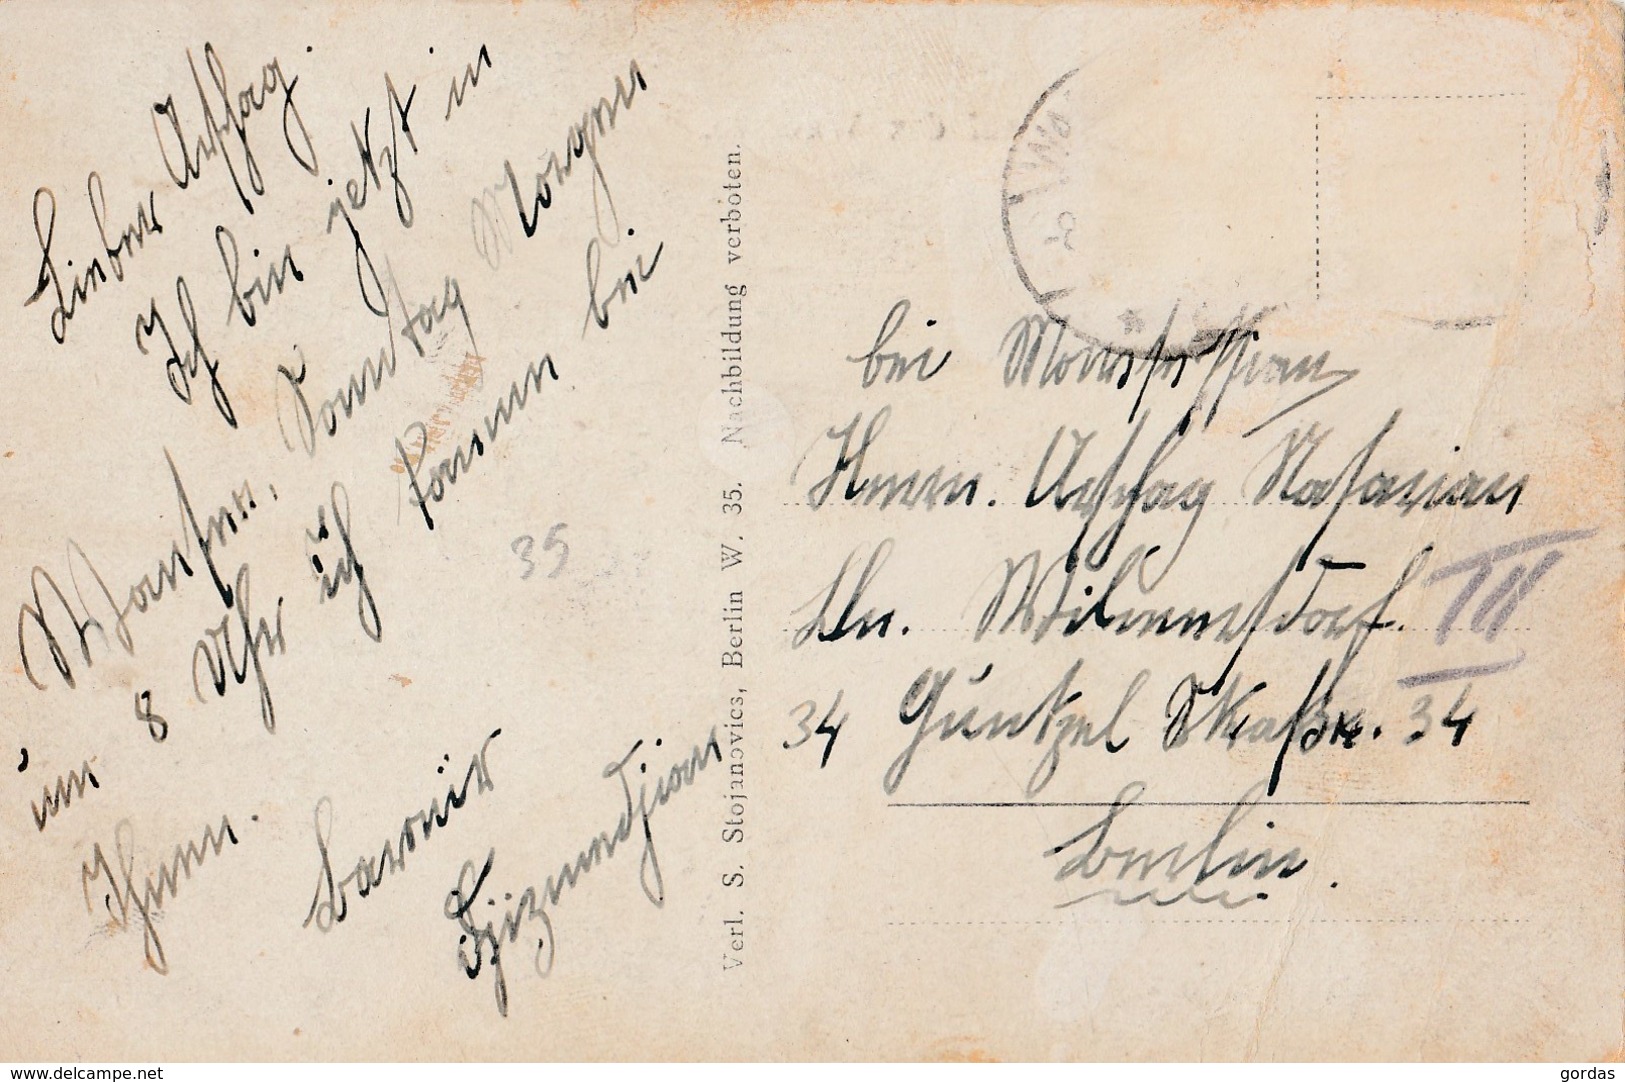 Lieber Arschag.
Ich bin jetzt in
Wansee, Sonntag Morgen
um 8 Uhr ich komm bei
Ihnen.
Barouir
Djizmedjian
35
Verl. S. Stojanovics, Berlin W. 35. Nachbildung verboten.
bei
Herrn. Arschag Nasarian
Bln. Wilmersdorf. III
34 Güntzel Straße. 34
Berlin.
www.delcampe.net
gordas